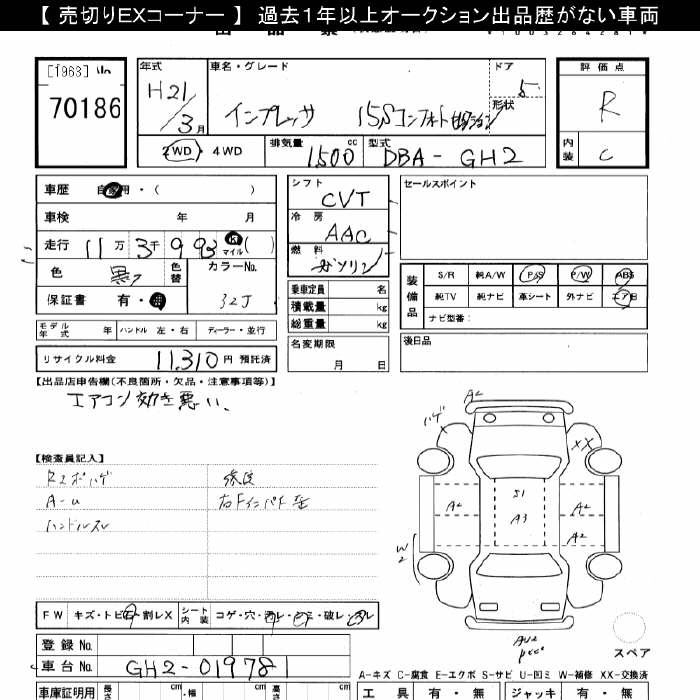 【 売切りEXコーナー 】 過去1年以上オークション出品歴がない車両
[1963]
70186
年式
H21/3月
車名・グレード
インプレッサ 15Sコンフォート
ドア
5
形状
評価点
R
内装
C
2WD 4WD
排気量
1500 cc
型式
DBA-GH2
車歴 自 用・( )
車検 年 月
走行 11万3千993 マイル ( )
色 黒 色替
カラーNo.
32J
保証書 有・無
シフト
CVT
冷房
AAC
燃料
ガソリン
乗車定員 名
積載量 kg
総重量 kg
名変期限
月 日
セールスポイント
装備品
S/R 純A/W P/S P/W ABS
純TV 純ナビ 革シート 外ナビ エアB
ナビ型番:
後日品
モデル年式 年 ハンドル 左・右 ディーラー・並行
リサイクル料金 11,310 円 預託済
【出品店申告欄(不良箇所・欠品・注意事項等)】
エアコン効き悪い、
【検査員記入】
A-u
ハンドルスレ
A2
ハゲ
XX
S1
A2
A3
A2
A2
W2
FW キズ・トビ・ 割レX シート内装 コゲ・穴・ レ・ ミ・破レ・ レ
登録 No.
車台 No. GH2-019781
スペア
A-キズ C-腐食 E-エクボ S-サビ U-凹ミ W-補修 XX-交換済
車庫証明用 長さ cm ・幅 cm 高さ cm
工具 有・無 ジャッキ 有・無